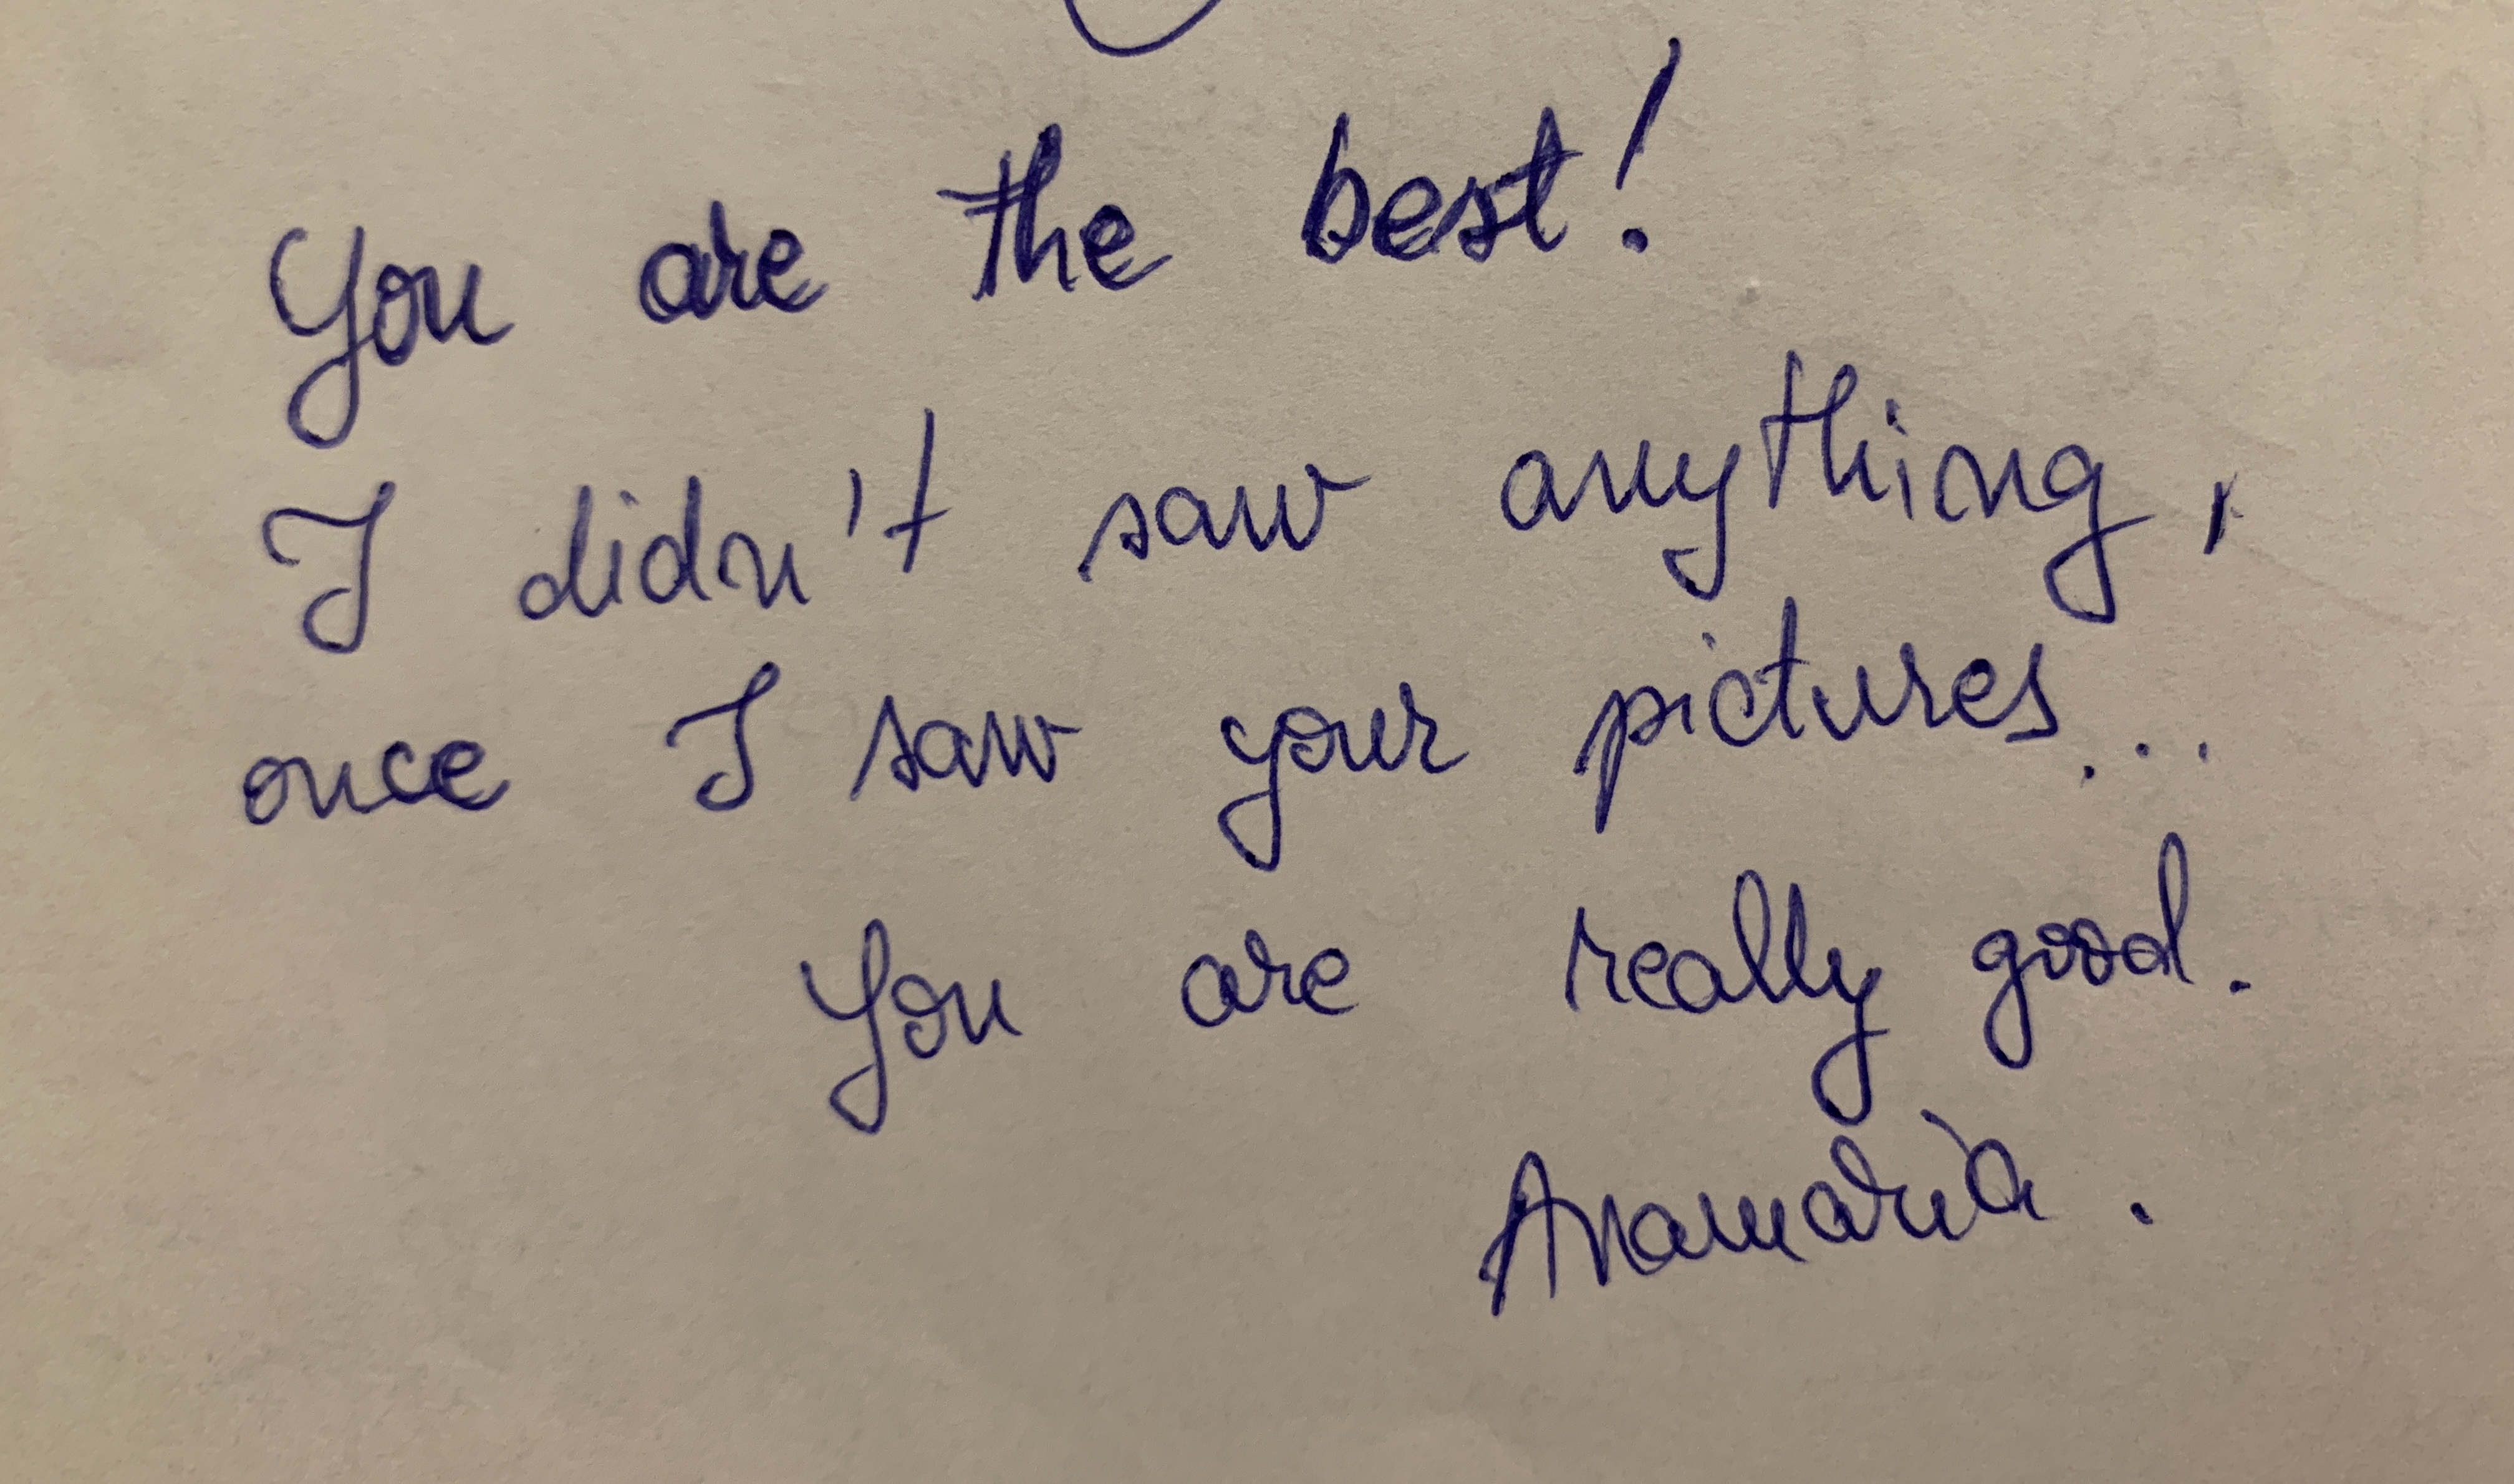 You are the best!
I didn't saw anything,
once I saw your pictures...
You are really good.
Anamaria.